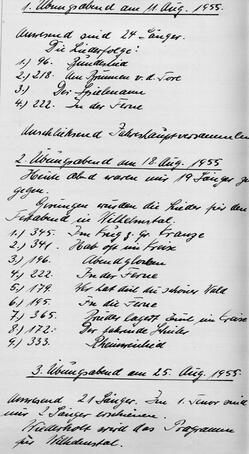 1. Übungsabend am 11. Aug. 1955.
Anwesend sind 24 Sänger.
Die Liederfolge:
1.) 96. Bundeslied
2.) 218. Am Brunnen v. d. Tore
3.) Der Spielmann
4.) 222. In der Ferne
Anschliessend Jahreshauptversammlun
2. Übungsabend am 18. Aug. 1955
Heute abend waren nur 19 Sänger zu
gegen.
Gesungen wurden die Lieder für den
in Wilhelmstal.
1.) 345. Im Krug z. gr. Kranze
2.) 341. Hab oft im Kreise
3.) 146. Abendglocken
4.) 222. In der Ferne
5.) 179. Wer hat dich du schöner Wald
6.) 145. In die Ferne
7.) 365. Brüder lagert euch im Kreise
8.) 172. Der fahrende Schüler
9.) 333. Rheinweinlied
3. Übungsabend am 25. Aug. 1955.
Anwesend 21 Sänger. Im 1. Tenor sind
nur 2 Sänger erschienen.
Wiederholt wird das Programm
für Wilhelmstal.